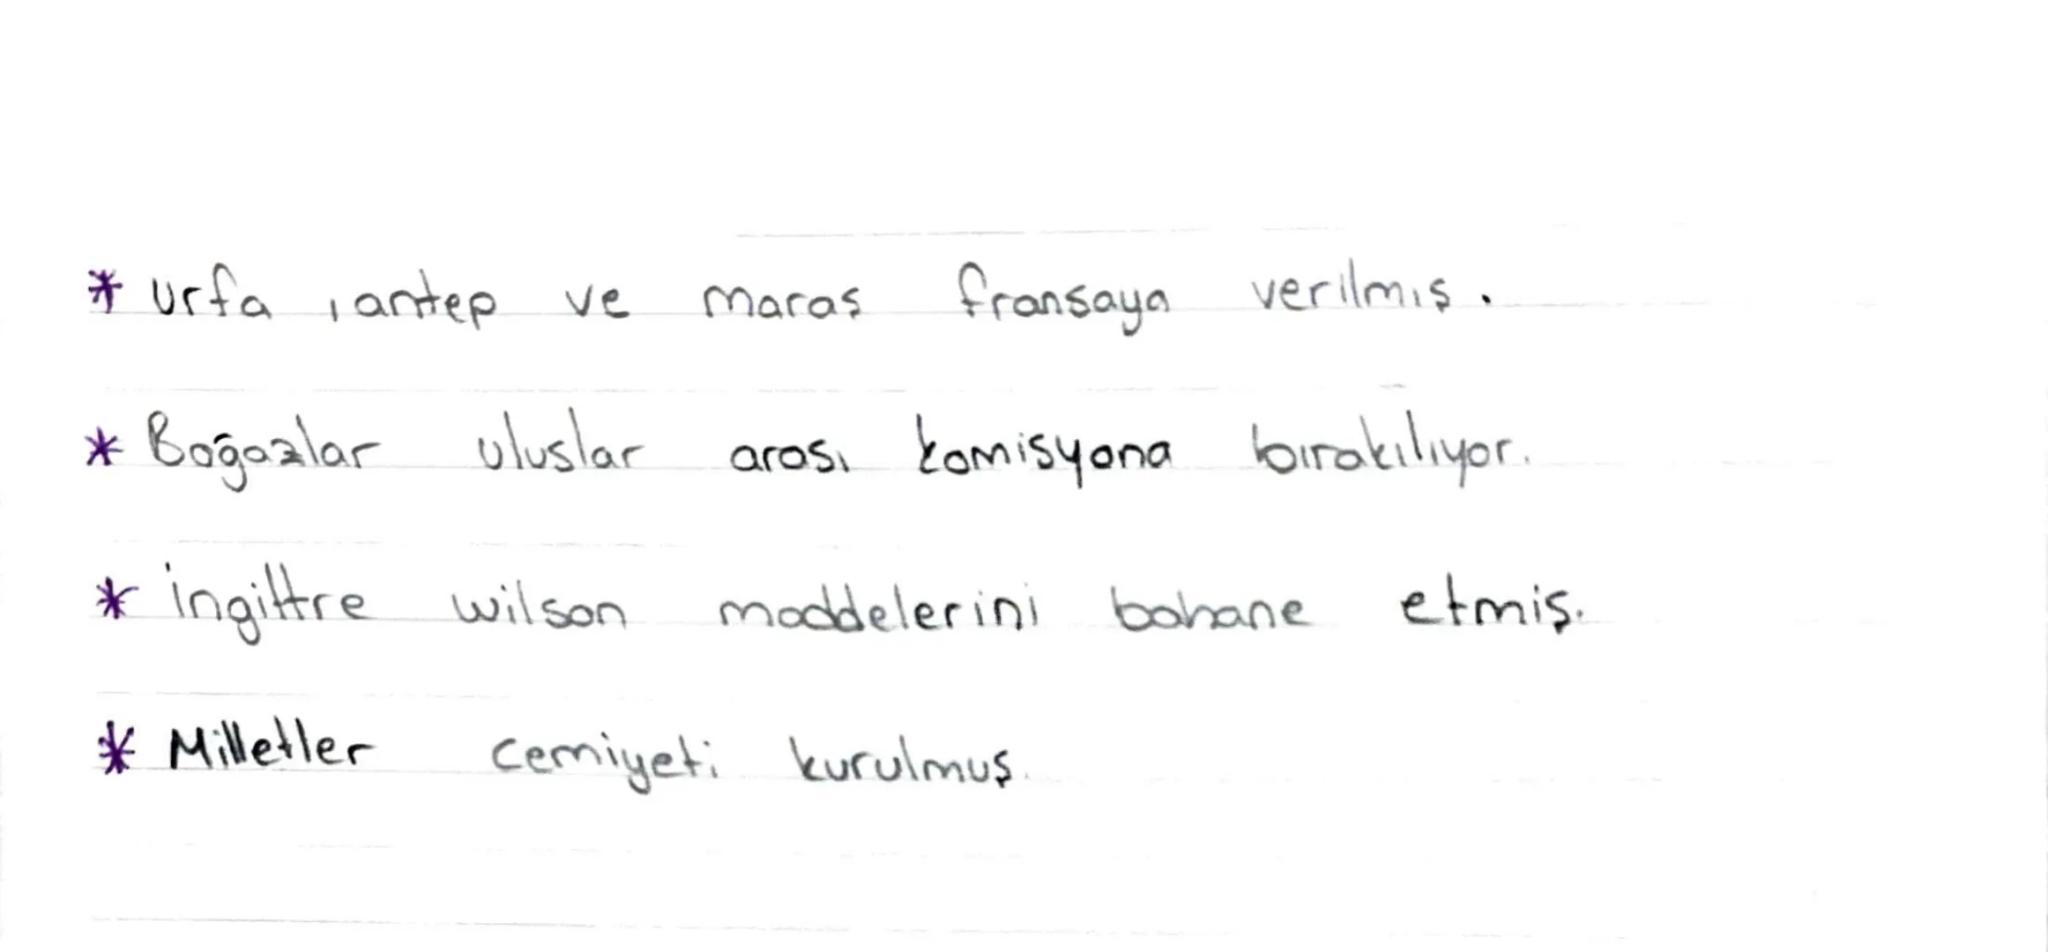 * Urfa , antep ve maraş fransaya verilmiş.
* Boğazlar uluslar arası komisyona bırakılıyor.
* İngiltre wilson maddelerini bahane etmiş.
* Milletler cemiyeti kurulmuş.